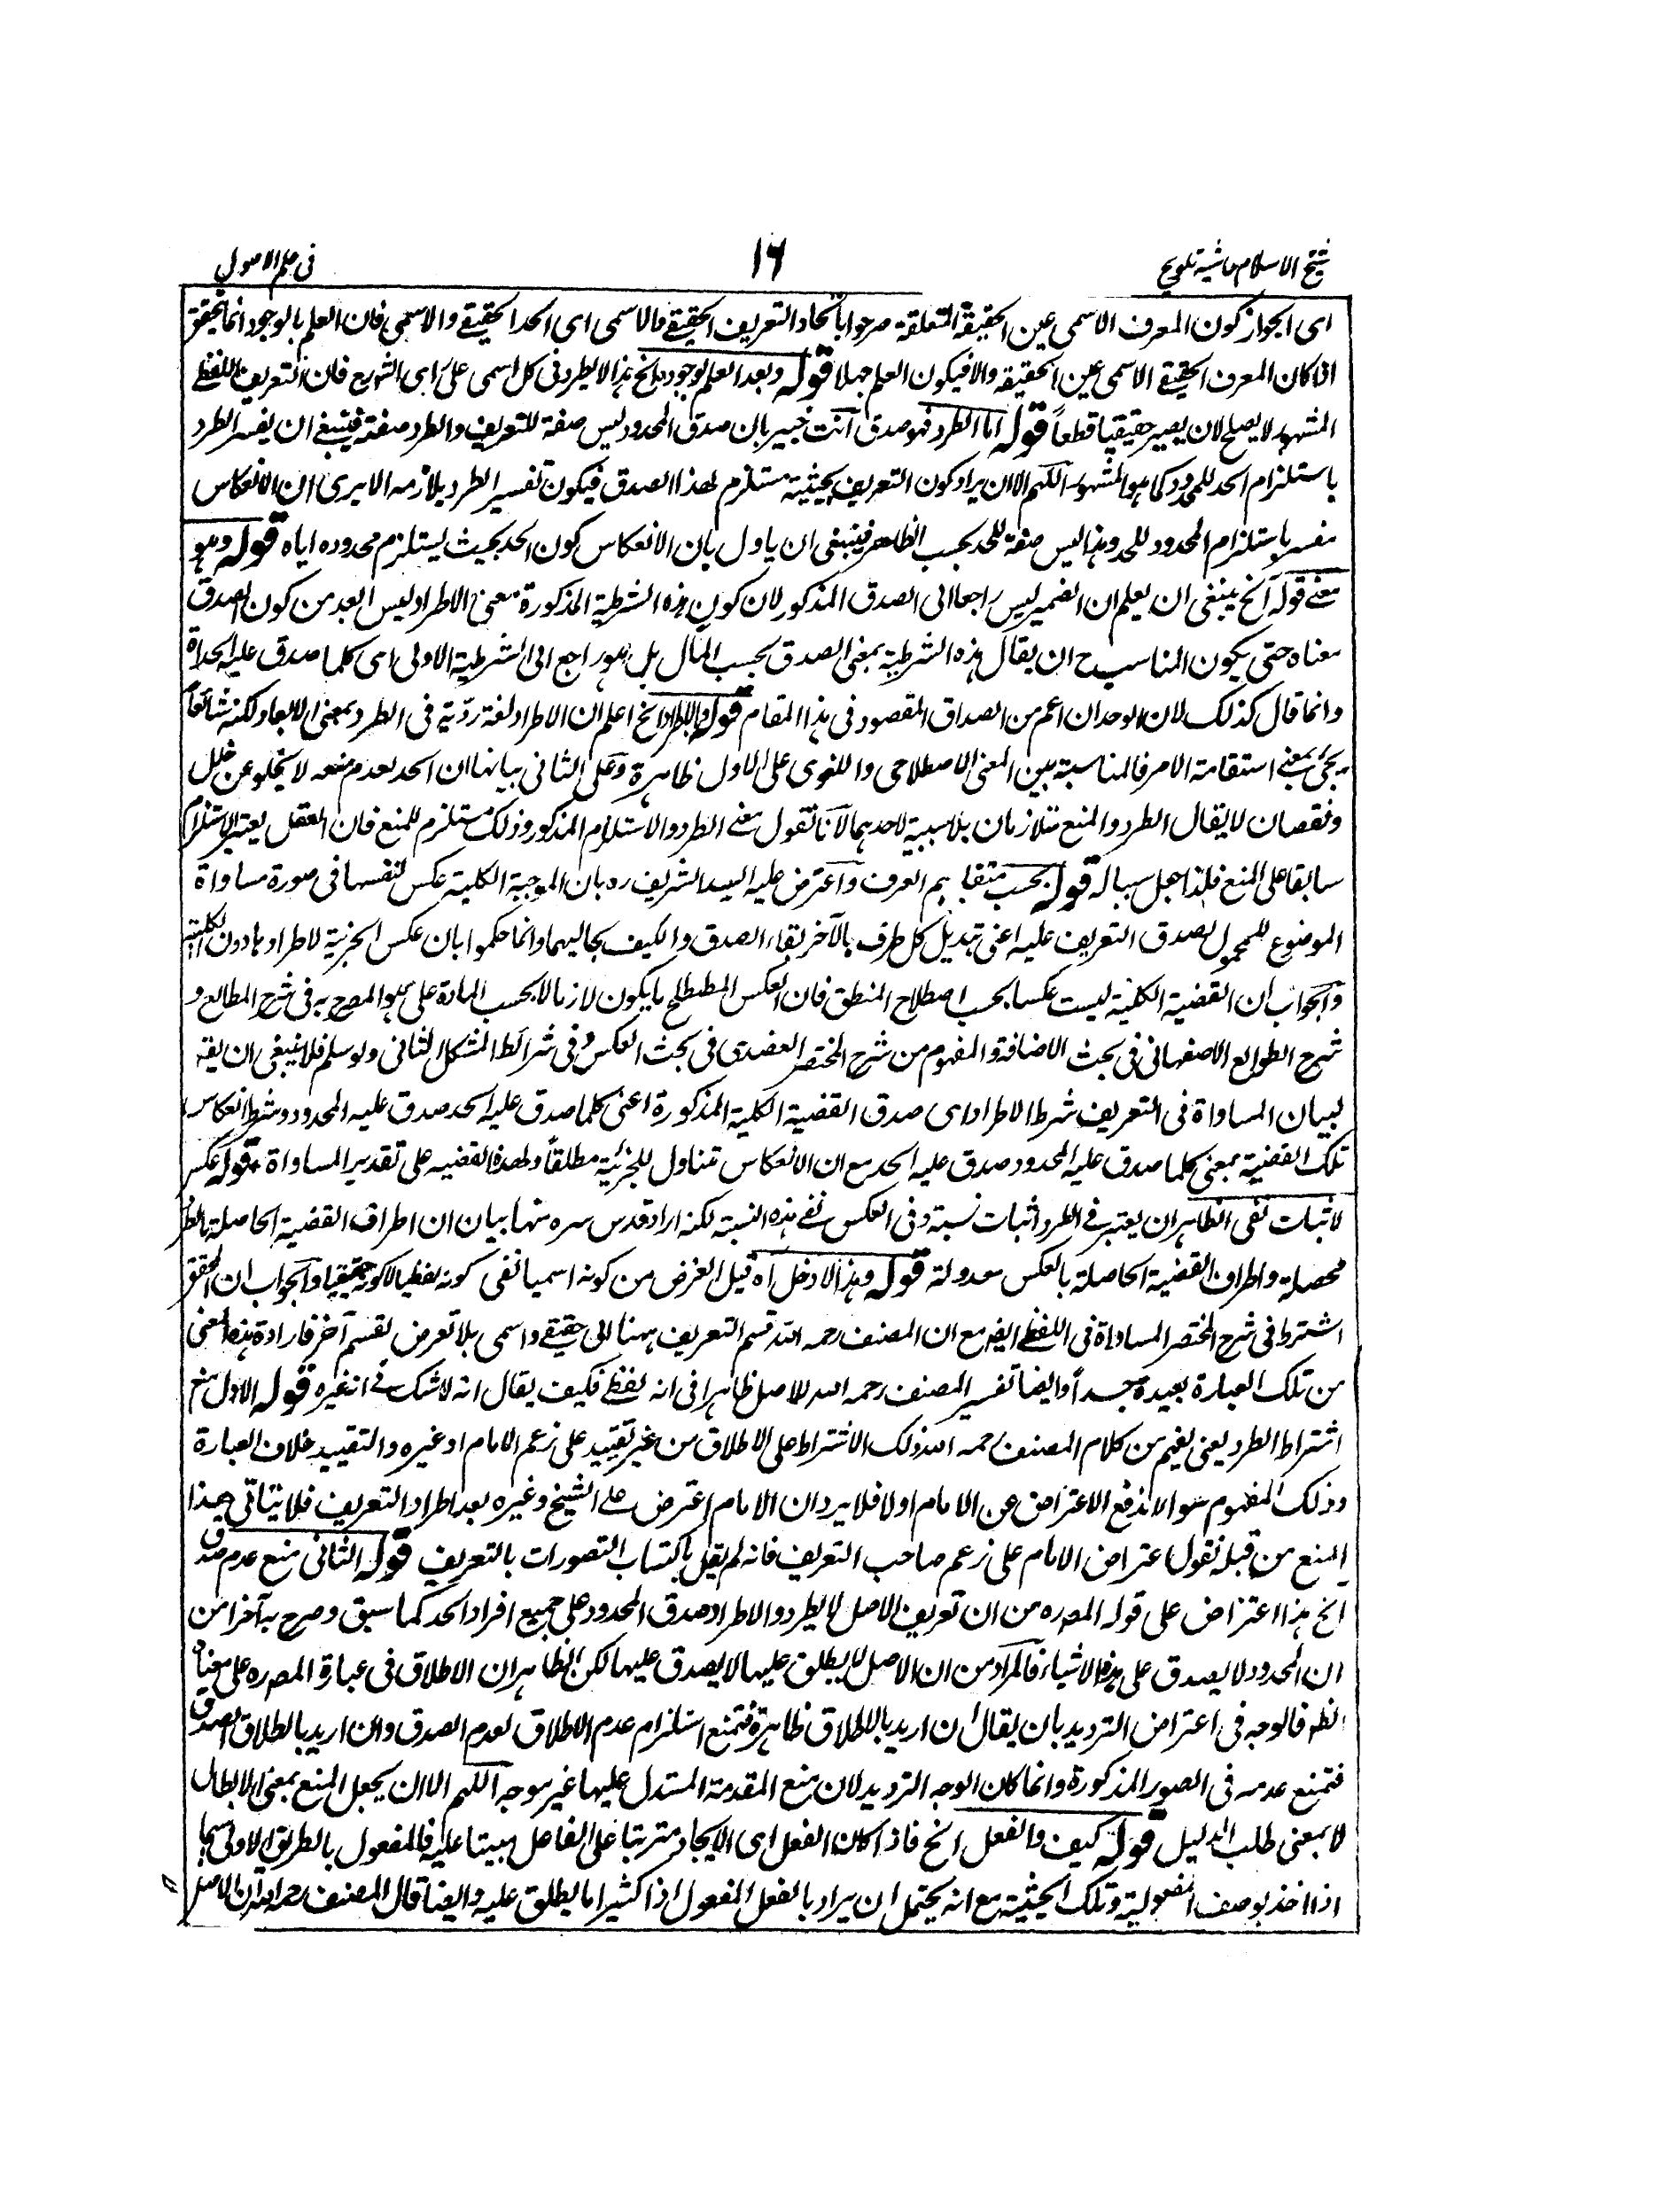 شيخ الاسلام حاشية تلويح
١٦
فى علم الاصول
اى الجواز كون المعرف الاسمى عين الحقيقة المتعلقة صرحوا باتحاد التعريف الحقيقے والاسمى اى الحد الحقيقے والاسمى فان العلم بالوجود انما يتحقق
اذا كان المعرف الحقيقے الاسمى عين الحقيقة والا فيكون العلم جهلا قوله وبعد العلم بوجودها الخ هذا لا يطرد فى كل اسمى على راى الشارع فان التعريف اللفظے
المشهور لا يصلح لان يصير حقيقيا قطعاً قوله اما الطرد فهو صدق آنت خبير بان صدق المحدود ليس صفة للتعريف والطرد صفته فينبغے ان يفسر الطرد
باستلزام الحد للمحدود كما هو المشهور اللّهم الا ان يراد كون التعريف بحيثية مستلزم لهذا الصدق فيكون تفسير الطرد بلازمه الا يرى ان الانعكاس
مفسر باستلزام المحدود للحد وهذا ليس صفة للحد بحسب الظاهر فينبغى ان ياول بان الانعكاس كون الحد بحيث يستلزم محدوده اياه قوله وهو
معنے قوله آلخ ينبغى ان يعلم ان الضمير ليس راجعا الى الصدق المذكور لان كون هذه الشرطية المذكورة معنى الاطراد ليس ابعد من كون الصدق
معناه حتى يكون المناسب ح ان يقال هذه الشرطية بمعنى الصدق بحسب المآل بل هو راجع الى الشرطية الاولى اى كلما صدق عليه الحد اه
وانما قال كذلك لان الوحدان اعم من الصداق المقصود فى هذا المقام قوله وبالاطراد الخ اعلم ان الاطراد لغة ردّية فى الطرد بمعنى الابعاد ولكنه شائعاً
يجئ بمعنے استقامة الامر فالمناسبة بين المعنى الاصطلاحى واللغوى على الاول ظاهرة وعلى الثانى بيانها ان الحد بعدم منعه لا يخلو عن خلل
ونقصان لا يقال الطرد والمنع متلازمان بلا سببية لاحدهما لآنا نقول معنے الطرد والاستلزام المذكور وذلك مستلزم للمنع فان العقل يعتبر الاستلزام
سابقا على المنع فلذا جعل سببا له قوله بحسب متفاهم العرف وآعترض عليه السيد الشريف ره بان الموجبة الكلية عكس لنفسها فى صورة مساواة
الموضوع للمحمول لصدق التعريف عليه اعنى تبديل كل طرف بالآخر بقاء الصدق والكيف بحاليهما وانما حكموا بان عكس الجزئية لاطرادها دون الكلية
وآلجواب ان القضية الكلية ليست عكسا بحسب اصطلاح المنطق فان العكس المصطلح ما يكون لازما لا بحسب المادة على ما هو المصرح به فى شرح المطالع و
شرح الطوالع الاصفهانى فى بحث الاضافة والمفهوم من شرح المختصر العضدى فى بحث العكس وفى شرائط الشكل الثانى ولو سلم فلا ينبغى ان يقه
لبيان المساواة فى التعريف شرط الاطراد اى صدق القضية الكلية المذكورة اعنى كلما صدق عليه الحد صدق عليه المحدود وشرط انعكاس
تلك القضية بمعنى كلما صدق عليه المحدود صدق عليه الحد مع ان الانعكاس متناول للجزئية مطلقاً ولهذه القضيه على تقدير المساواة قوله عكس
لاثبات نفى الظاهر ان يعتبر فے الطرد اثبات نسبة وفى العكس نفے هذه النسبة لكنه اراد قدس سره منها بيان ان اطراف القضية الحاصلة بالطرد
محصلة واطراف القضية الحاصلة بالعكس معدولة قوله وهذا لا دخل آه قيل الغرض من كونه اسميا نفى كونه لفظيا لا كونه حقيقيا وآلجواب ان المحقق
اشترط فى شرح المختصر المساواة فى اللفظے ايضه مع ان المصنف رحمه الله قسم التعريف ههنا الى حقيقے واسمى بلا تعرض لقسم آخر فارادة هذه المعنى
من تلك العبارة بعيدة جداً وايضا تفسير المصنف رحمه الله للاصل ظاهرا فى انه لفظے فكيف يقال انه لا شك فے انه غيره قوله الاول منع
اشتراط الطرد يعنى يفهم من كلام المصنف رحمه الله ذلك الاشتراط على الاطلاق من غير تقييد على زعم الامام او غيره والتقييد خلاف العبارة
وذلك المفهوم هو الاندفع الاعتراض عن الامام اولا فلا يرد ان الامام اعترض على الشيخ وغيره بعد اطراد التعريف فلا يتاتى هذا
المنع من قبله نقول اعتراض الامام على زعم صاحب التعريف فانه لم يقل باكتساب التصورات بالتعريف قوله الثانى منع عدم صدق
الخ هذا اعتراض على قوله المصره من ان تعريف الاصل لا يطرد والاطراد صدق المحدود على جميع افراد الحد كما سبق وصرح به آخرا من
ان المحدود لا يصدق على هذه الاشياء فالمراد من ان الاصل لا يطلق عليها لا يصدق عليها لكن الظاهر ان الاطلاق فى عبارة المصره على معناه
الظه فالوجه فى اعتراض الترديد بان يقال ان اريد بالاطلاق ظاهره فنمنع استلزام عدم الاطلاق لعدم الصدق وان اريد بالطلاق الصدق
فنمنع عدمه فى الصور المذكورة وانما كان الوجه الترديد لان منع المقدمة المستدل عليها غير موجه اللّهم الا ان يجعل المنع بمعنى الابطال
لا بمعنى طلب الدليل قوله كيف والفعل الخ فاذا كان الفعل اى الايجاد مترتبا على الفاعل مبيتا عليه فالمفعول بالطريق الاولى سيما
اذا اخذ بوصف المفعولية وتلك الحيثية مع انه يحتمل ان يراد بالفعل المفعول اذا كثيرا ما يطلق عليه وايضا قال المصنف رحمه الله ان الاصل